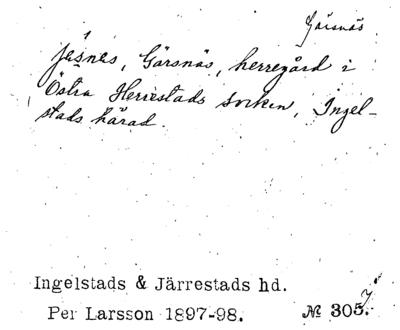 Gärsnäs
jäsnes, Gärsnäs, herregård i
Östra Herrestads socken, Ingel-
stads härad.
Ingelstads & Järrestads hd.
Per Larsson 1897-98. № 305.